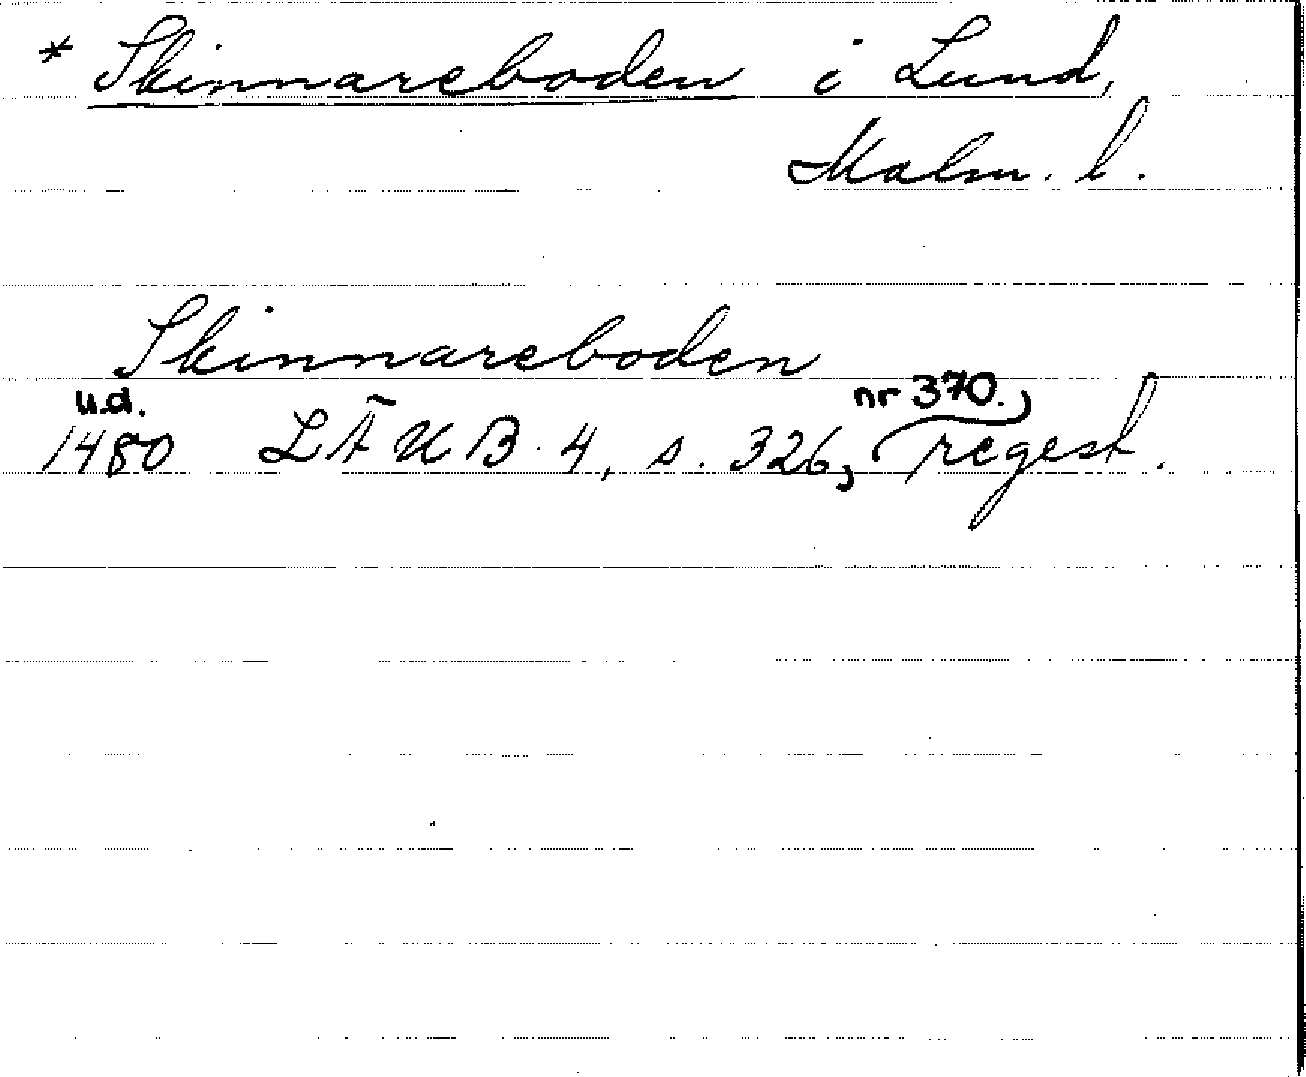 * Skinnareboden i Lund,
Malm. l.
Skinnareboden
u.d. nr 370.,
1480 LÄUB. 4, s. 326, regest.